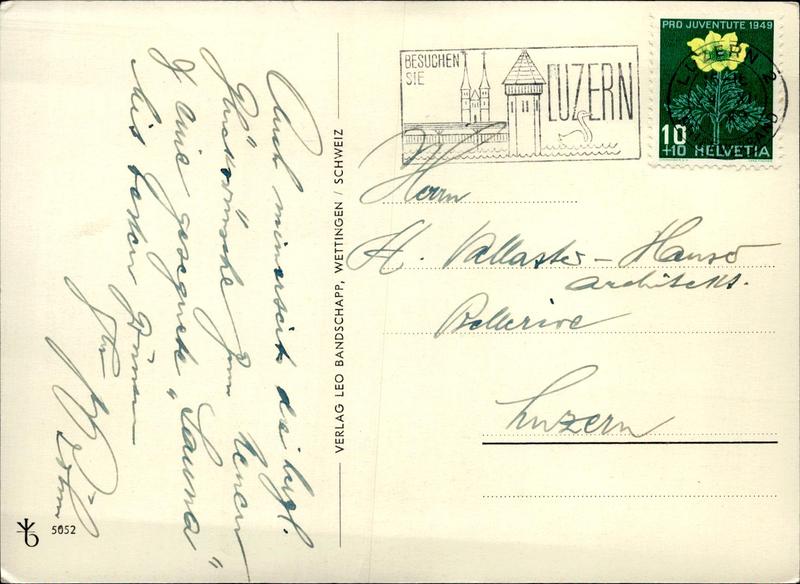 Auch meinerseits die herzl.
Glückwünsche zum neuen
J eine gesegnete „Sauna"
Mit besten Grüssen
Ihr
VERLAG LEO BANDSCHAPP, WETTINGEN / SCHWEIZ
5652
BESUCHEN
SIE
LUZERN
PRO JUVENTUTE 1949
LUZERN 2
10
+10 HELVETIA
Herrn
H. Vallaster-Hauser
Architekt.
Bellerive
Luzern